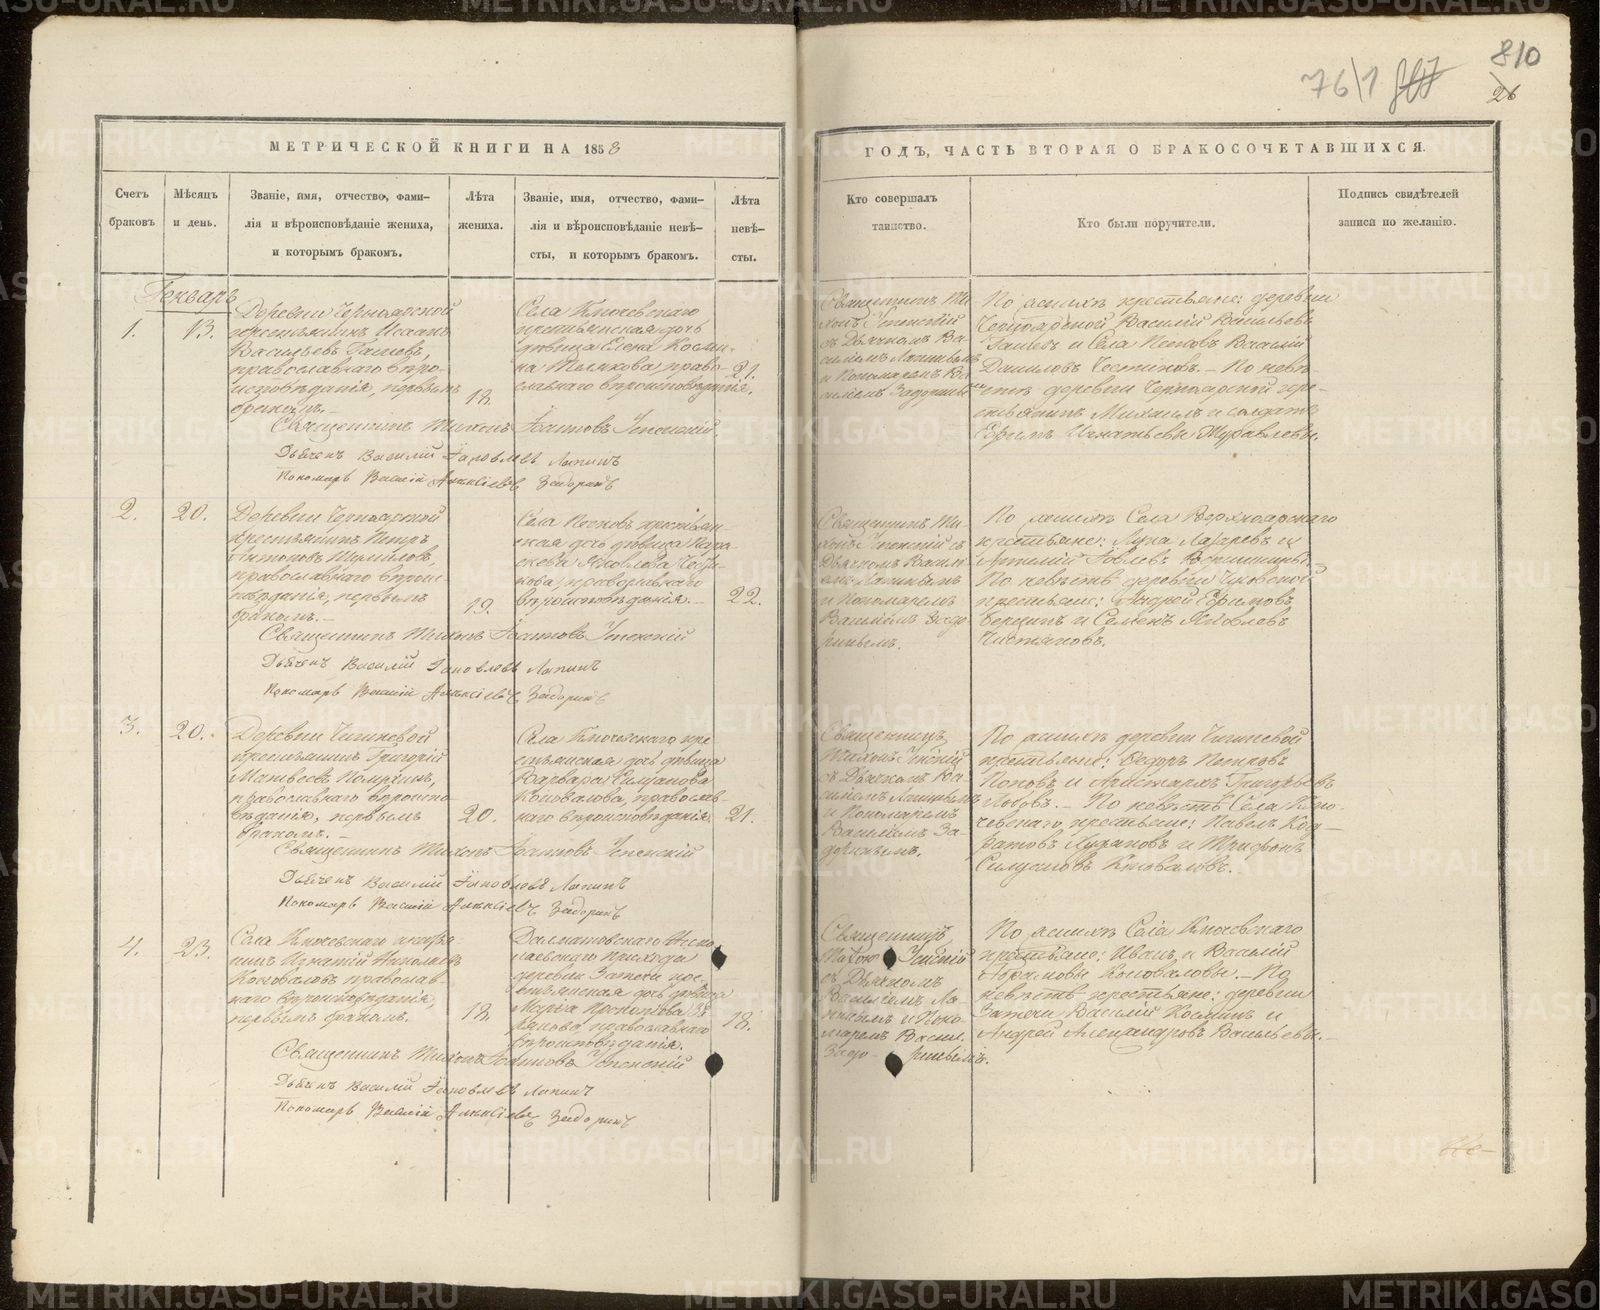 810
76\1
26
МЕТРИЧЕСКОЙ КНИГИ НА 1858
ГОДЪ, ЧАСТЬ ВТОРАЯ О БРАКОСОЧЕТАВШИХСЯ.
Счетъ
браковъ
Мѣсяцъ
и день.
Званіе, имя, отчество, фами-
лія и вѣроисповѣданіе жениха,
и которымъ бракомъ.
Лѣта
жениха.
Званіе, имя, отчество, фами-
лія и вѣроисповѣданіе невѣ-
сты, и которымъ бракомъ.
Лѣта
невѣ-
сты.
Кто совершалъ
таинство.
Кто были поручители.
Подпись свидѣтелей
записи по желанію.
Генварь
1.
13.
Деревни Черноярской
крестьянинъ Исаакъ
Васильевъ
православнаго вѣро-
исповѣданія, первымъ
бракомъ.
18.
Села Ключевскаго
крестьянская дочь
дѣвица Елена Косми-
на право-
славнаго вѣроисповѣданія.
21.
Священникъ Ти-
хонъ Успенскій
съ Дьячкомъ Ва-
силіемъ Лапинымъ
и Пономаремъ Ва-
силіемъ Задоринымъ
По женихѣ крестьяне: деревни
Черноярской Василій Васильевъ
и Села Василій
Даниловъ По невѣ-
стѣ деревни Черноярской кре-
стьянинъ Михаилъ и солдатъ
Ефимъ Игнатьевы Журавлевы.
Священникъ Тихонъ Іоанновъ Успенскій.
Дьячекъ Василій Іаковлевъ Лапинъ
Пономарь Василій Алексіевъ Задоринъ
2.
20.
Деревни Черноярской
крестьянинъ Петръ
Антоновъ Шумиловъ,
православнаго вѣроис-
повѣданія, первымъ
бракомъ.
19.
Села крестьян-
ская дочь дѣвица Пара-
скева Яковлева
православнаго
вѣроисповѣданія.
22.
Священникъ Ти-
хонъ Успенскій съ
Дьячкомъ Васил-
емъ Лапинымъ
и Пономаремъ
Василіемъ Задо-
ринымъ.
По женихѣ Села Верхноярскаго
крестьяне: Лука Лазаревъ и
По невѣстѣ деревни
крестьяне: Андрей Ефимовъ
и Семенъ Яковлевъ
Чистяковъ.
Священникъ Тихонъ Іоанновъ Успенскій
Дьячекъ Василій Іаковлевъ Лапинъ
Пономарь Василій Алексіевъ Задоринъ
3.
20.
Деревни
крестьянинъ Григорій
Матвеевъ
православнаго вѣроиспо-
вѣданія, первымъ
бракомъ.
20.
Села Ключевскаго кре-
стьянская дочь дѣвица
Варвара Силуанова
Коновалова, православ-
наго вѣроисповѣданія
21.
Священникъ
Тихонъ Успенскій
съ Дьячкомъ Ва-
силіемъ Лапинымъ
и Пономаремъ
Василіемъ За-
доринымъ.
По женихѣ деревни
крестьяне: Ѳедоръ Петровъ
Поповъ и Аристархъ Григорьевъ
По невѣстѣ Села Клю-
чевскаго крестьяне: Павелъ Код-
ратовъ и Трифонъ
Силуановъ Коноваловъ.
Священникъ Тихонъ Іоанновъ Успенскій
Дьячекъ Василій Іаковлевъ Лапинъ
Пономарь Василій Алексіевъ Задоринъ
4.
23.
Села Ключевскаго крестья-
нинъ Игнатій Николаевъ
Коноваловъ православ-
наго вѣроисповѣданія,
первымъ бракомъ.
18.
Далматовскаго Нико-
лаевскаго Прихода
деревни Затечи крес-
тьянская дочь дѣвица
Марѳа Прокопьева
православнаго
вѣроисповѣданія.
18.
Священникъ
Тихонъ Успенскій
съ Дьячкомъ
Василіемъ Ла-
пинымъ и Поно-
маремъ Васил.
Задоринымъ.
По женихѣ Села Ключевскаго
крестьяне: Иванъ и Василій
Абрамовы Коноваловы. По
невѣстѣ крестьяне: деревни
Затечи Василій Косминъ и
Андрей Александровъ Васильевы.
Священникъ Тихонъ Іоанновъ Успенскій
Дьячекъ Василій Іаковлевъ Лапинъ
Пономарь Василій Алексіевъ Задоринъ
METRIKI.GASO-URAL.RU